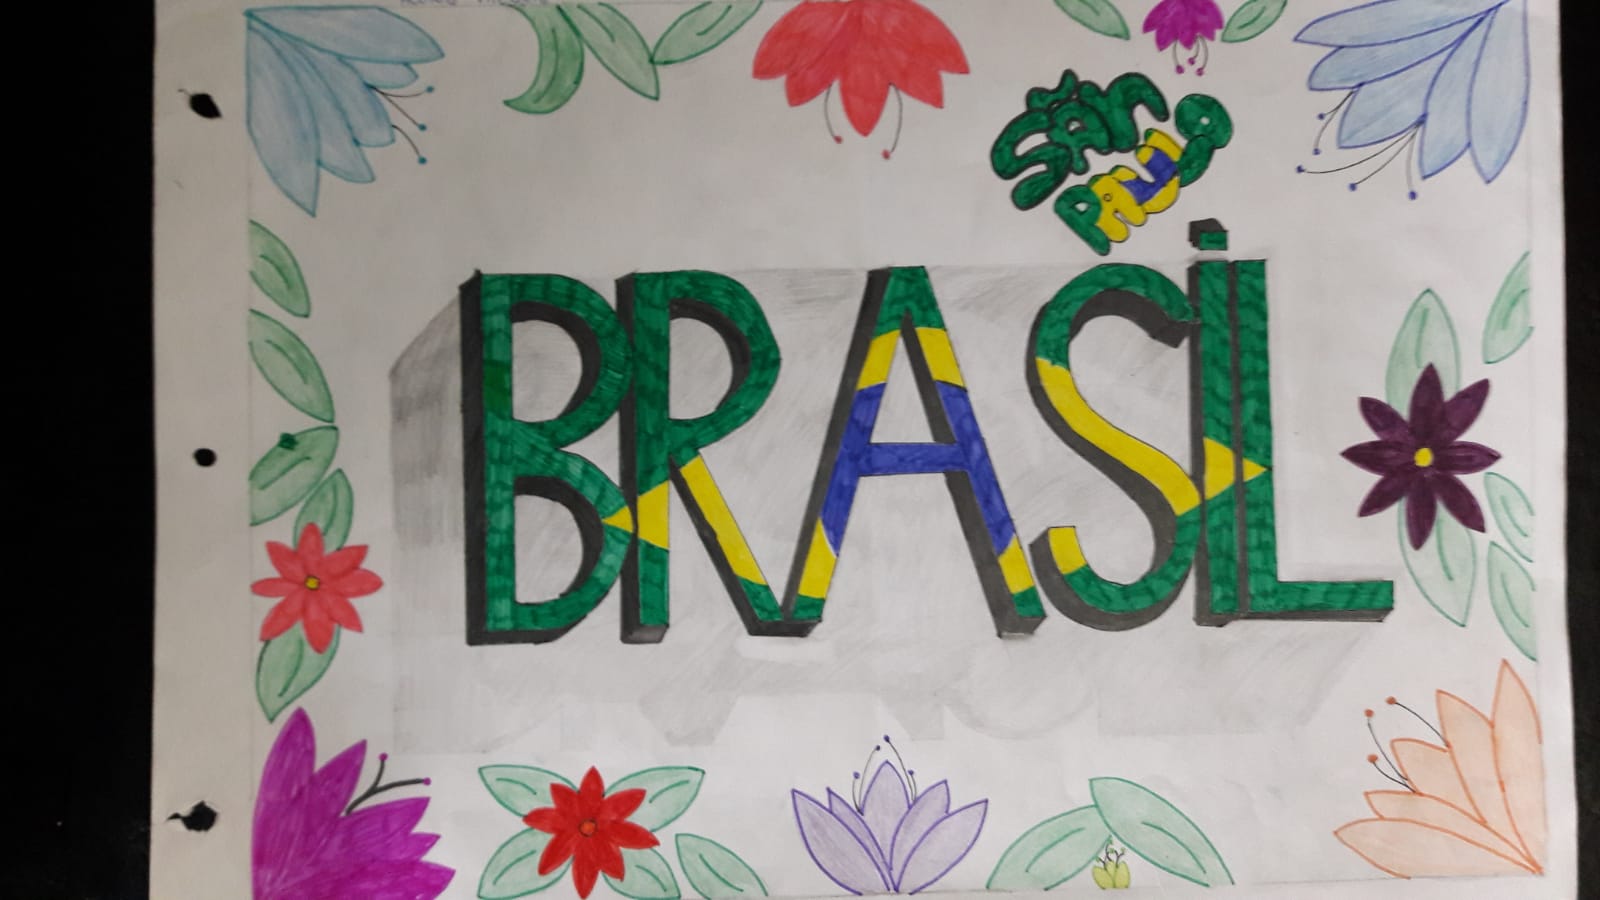 SÃO
PAULO
BRASİL